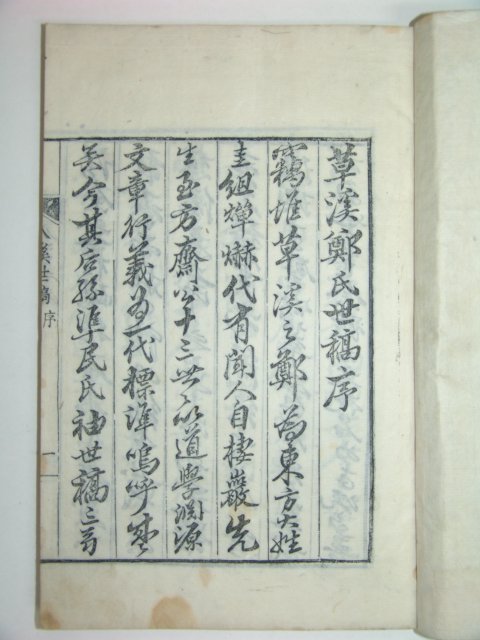 草溪鄭氏世稿序
竊惟草溪之鄭為東方大姓
圭組燀爀代有聞人自棲巖先
生至方齋公十三世以道學淵源
文章行義為一代標準嗚呼盛
矣今其后孫準民氏袖世稿三
八溪世稿 序 一